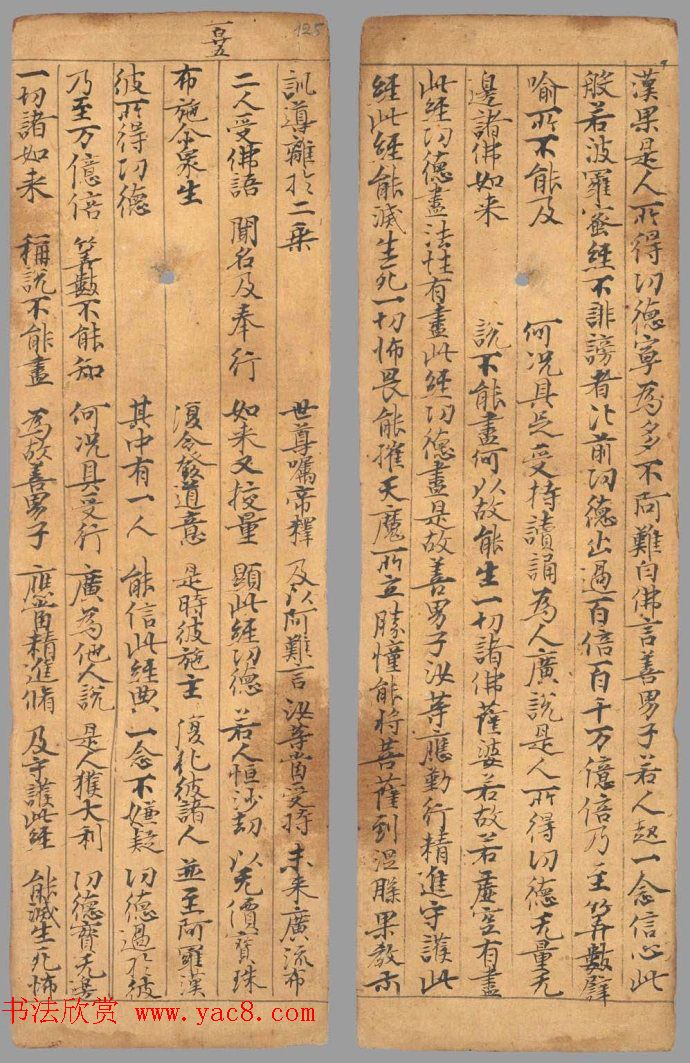 漢果是人所得功德寧為多不阿難白佛言善男子若人起一念信心此
般若波羅蜜經不誹謗者比前功德出過百倍百千万億倍乃至筭數譬
喻所不能及 何況具足受持讀誦為人廣說是人所得功德无量无
邊諸佛如来 說不能盡何以故能生一切諸佛薩婆若故若虛空有盡
此經功德盡法性有盡此經功德盡是故善男子汝等應勤行精進守護此
經此經能滅生死一切怖畏能摧天魔所立勝幢能将菩薩到涅槃果教示
一百五
125
訓導離於二乘 世尊嘱帝釋 及以阿難言 汝等當受持 未来廣流布
二人受佛語 聞名及奉行 如来又挍量 顯此經功德 若人恒沙劫 以无價寶珠
布施众生 復令發道意 是時彼施主 復化彼諸人 並至阿羅漢
彼所得功德 其中有一人 能信此經典 一念不嫌疑 功德過於彼
乃至万億倍 筭數不能知 何況具受行 廣為他人說 是人獲大利 功德寶无邊
一切諸如来 稱說不能盡 為故善男子 應當精進脩 及守護此經 能滅生死怖
书法欣赏 www.yac8.com